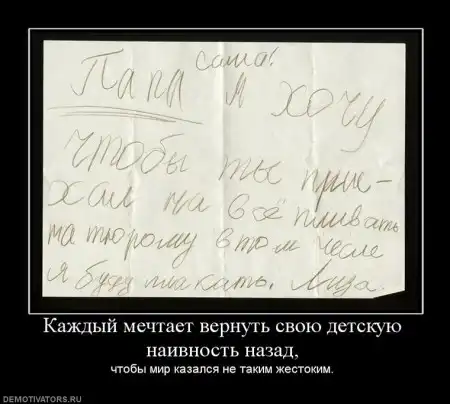 сама!
Папа я хочу
чтобы ты прие-
хал на всё пливать
на тюрому втом числе
я буду плакать. Лиза
Каждый мечтает вернуть свою детскую
наивность назад,
чтобы мир казался не таким жестоким.
DEMOTIVATORS.RU